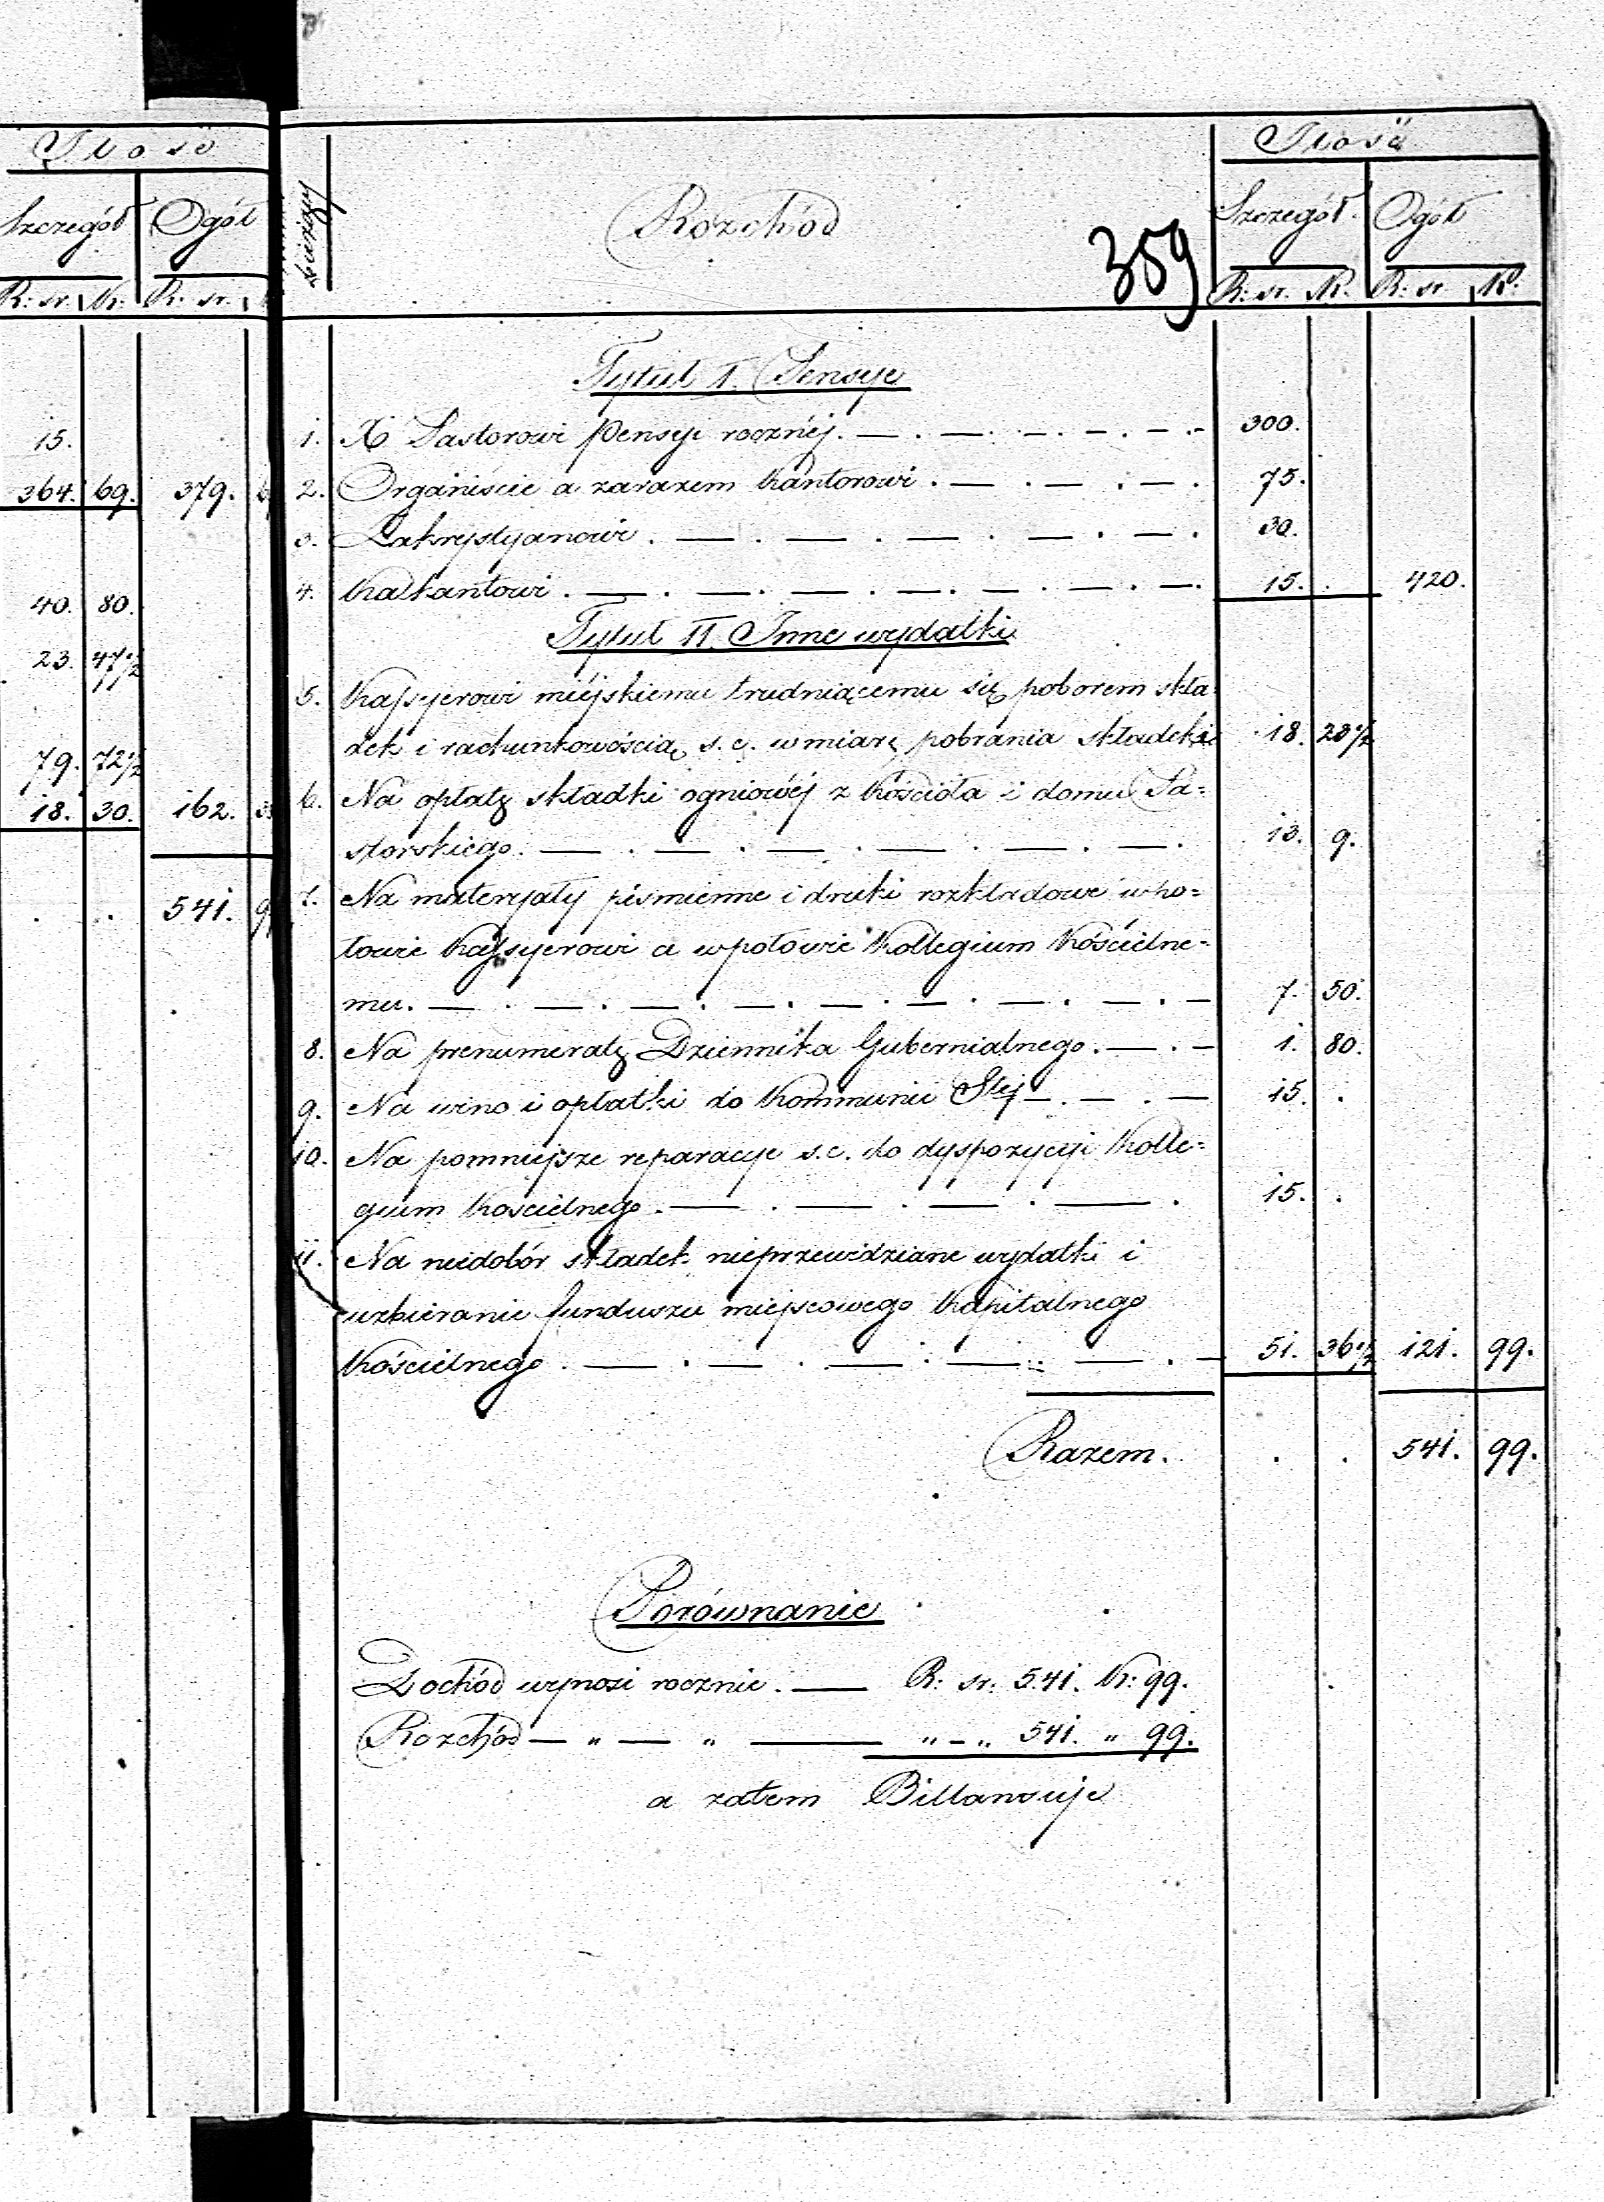 Ilość
Szczegół Ogół
R: sr. K: R: sr.
15.
364. 69. 379.
40. 80.
23. 47 1/2
79. 72 1/2
18. 30. 162.
. . 541.
Ilość
Rozchód
359
Szczegół Ogół
R: sr. K. R: sr. K:
Tytuł I. Pensye
1. X Pastorowi pensyi rocznéj. 300.
2. Organiście a zarazem Kantorowi. 75.
3. Zakrystyanowi. 30.
4. Kalkantowi. 15. . 420.
Tytuł II. Inne wydatki
5. Kassyerowi miéjskiemu trudniącemu się poborem skła-
dek i rachunkowością s. c. w miarę pobrania składek 18. 23 1/2
6. Na opłatę składki ogniowéj z Kościoła i domu Pa=
storskiego. 13. 9.
7. Na materyały piśmienne i druki rozkładowe w po=
łowie Kassyerowi a w połowie Kollegium Kościelne=
mu. 7. 50.
8. Na prenumeratę Dziennika Gubernialnego. 1. 80.
9. Na wino i opłatki do Kommunii Stéj 15. .
10. Na pomniejsze reparacye s. c. do dyspozycyi Kolle=
gium Kościelnego. 15. .
11. Na niedobór składek nieprzewidziane wydatki i
uzbieranie funduszu miejscowego Kapitalnego
Kościelnego. 51. 36 1/2 121. 99.
Razem. . . 541. 99.
Porównanie
Dochód wynosi rocznie. R: sr. 541. K: 99.
Rozchód — " — " " - " 541. " 99.
a zatem Billansuje